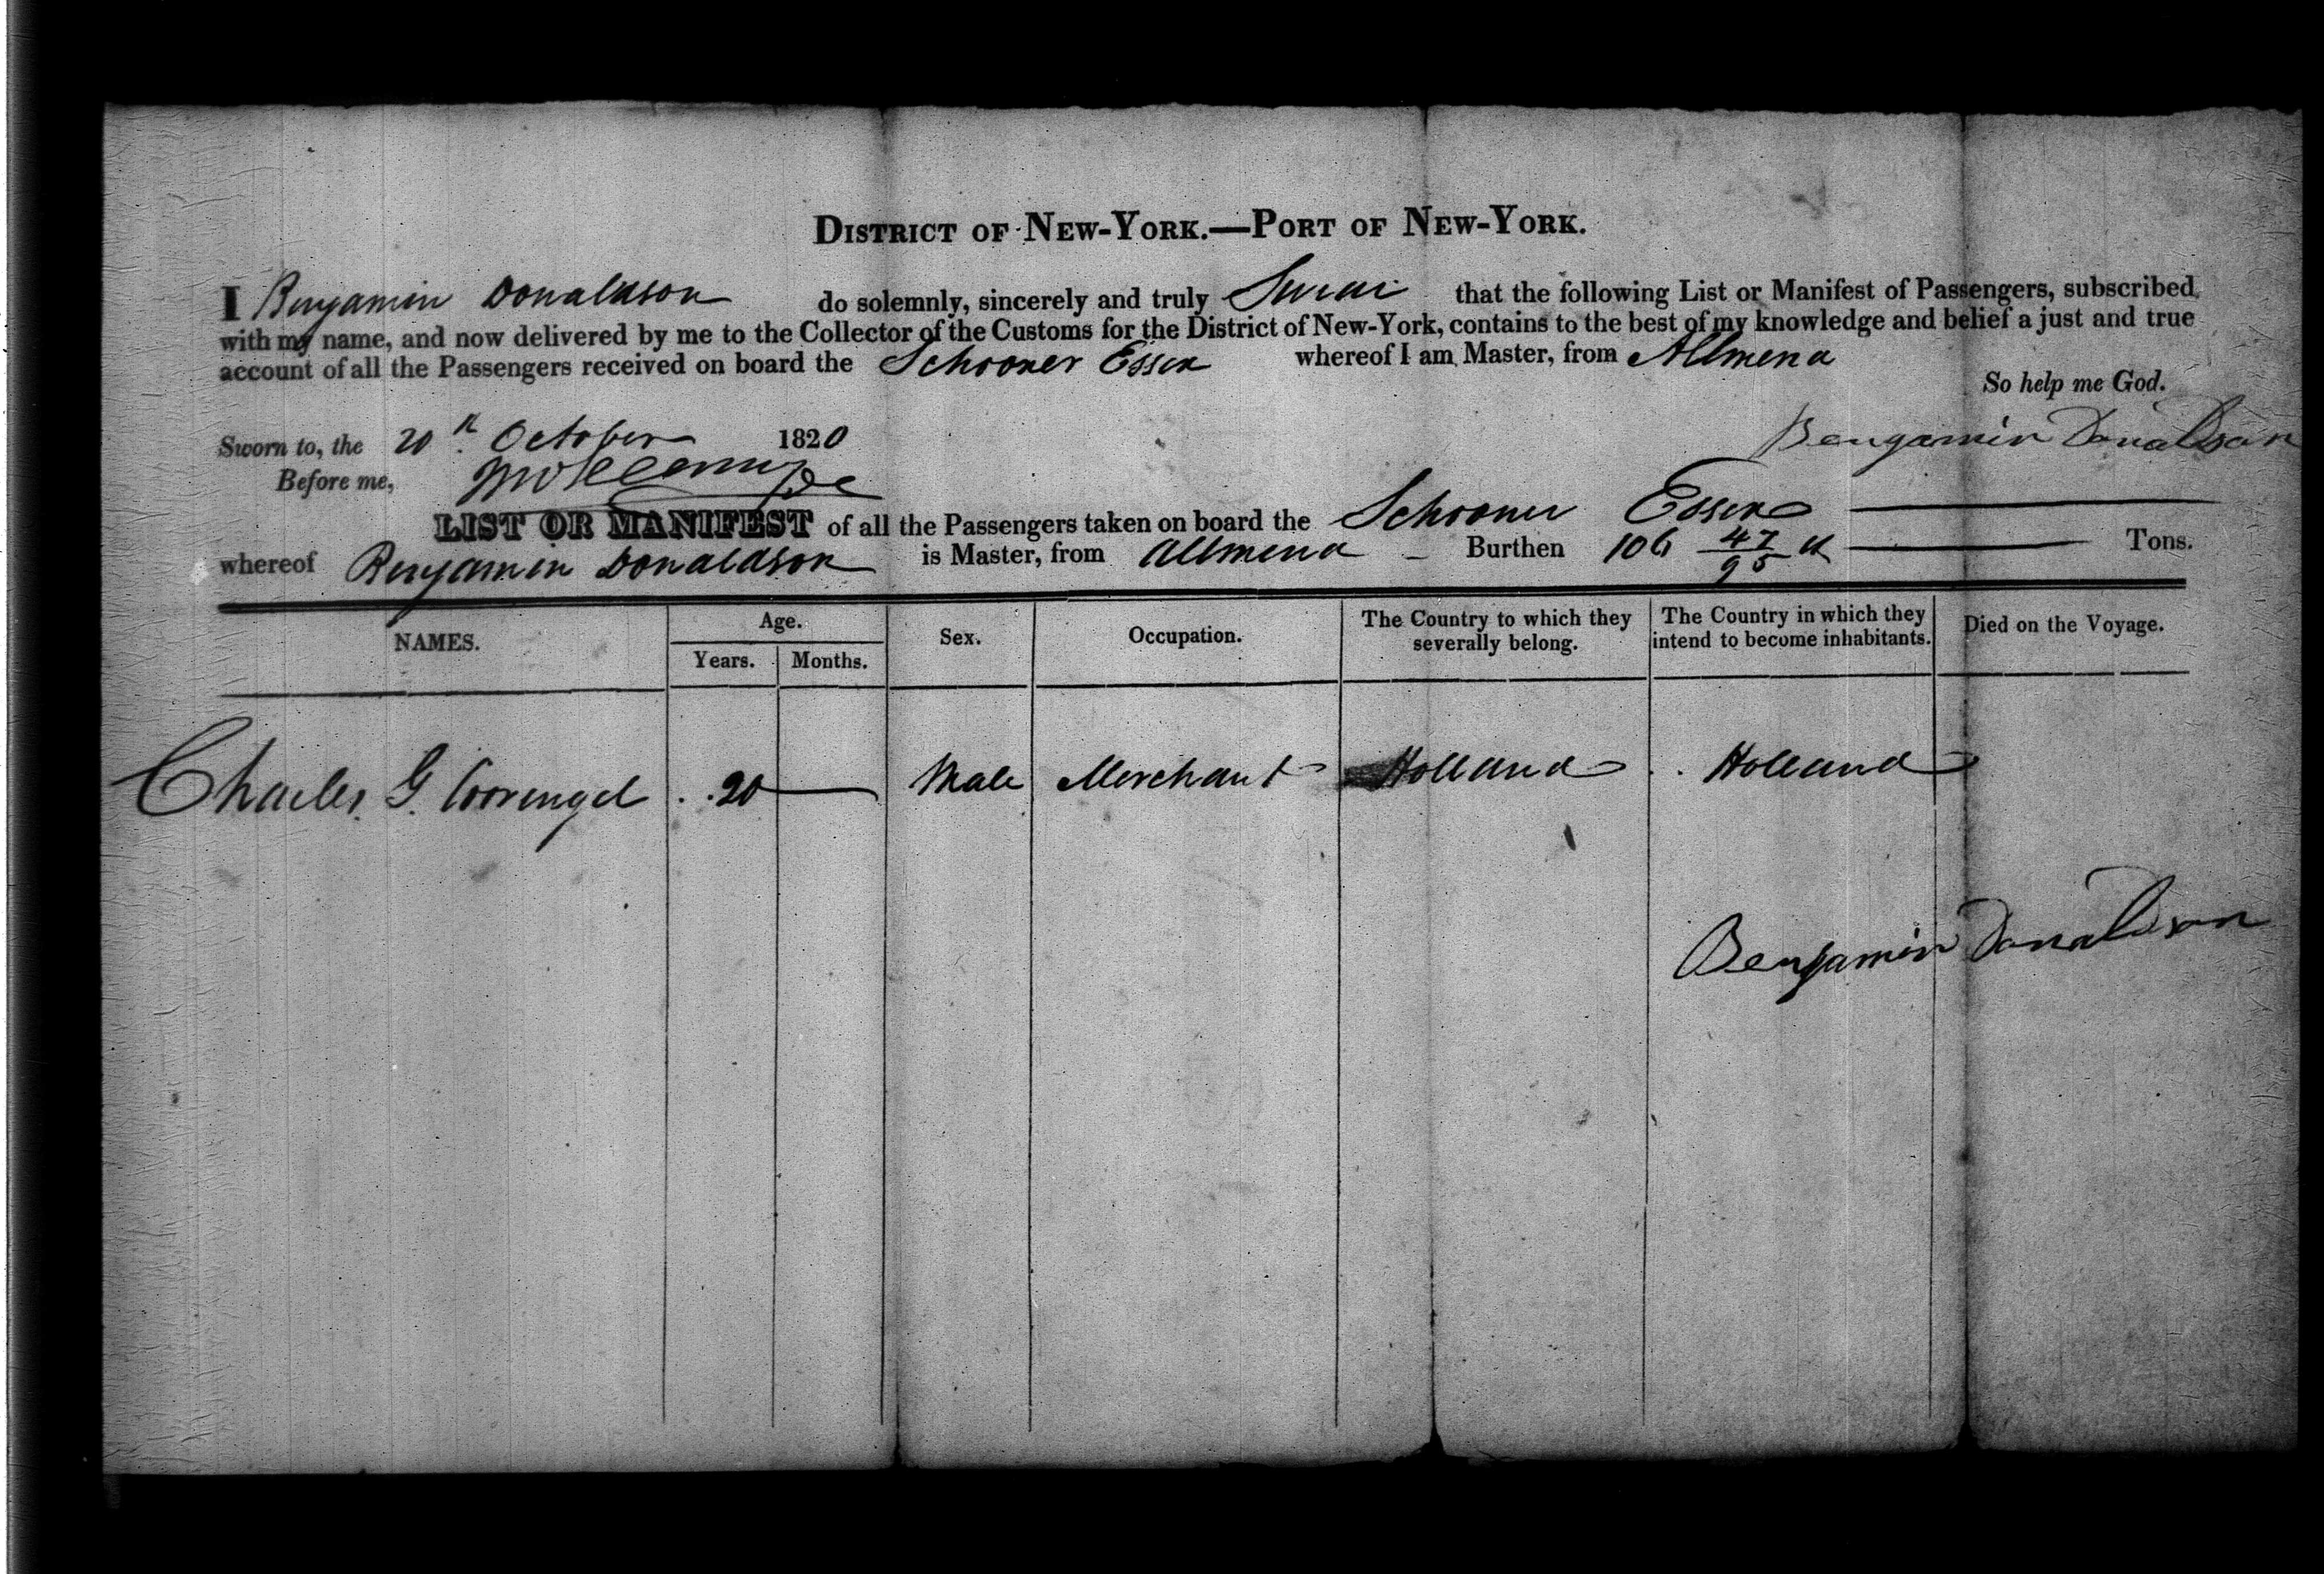 DISTRICT OF NEW-YORK.—PORT OF NEW-YORK.
I Benjamin Donaldson do solemnly, sincerely and truly Swear that the following List or Manifest of Passengers, subscribed
with my name, and now delivered by me to the Collector of the Customs for the District of New-York, contains to the best of my knowledge and belief a just and true
account of all the Passengers received on board the Schooner Essex whereof I am Master, from Allmena
So help me God.
Sworn to, the 20th October 1820
Benjamin Donaldson
Before me,
LIST OR MANIFEST of all the Passengers taken on board the Schooner Essex
whereof Benjamin Donaldson is Master, from Allmena Burthen 106 47/95 Tons.
NAMES. Age. Sex. Occupation. The Country to which they severally belong. The Country in which they intend to become inhabitants. Died on the Voyage.
Years. Months.
Charles G. 20 Male Merchant Holland Holland
Benjamin Donaldson